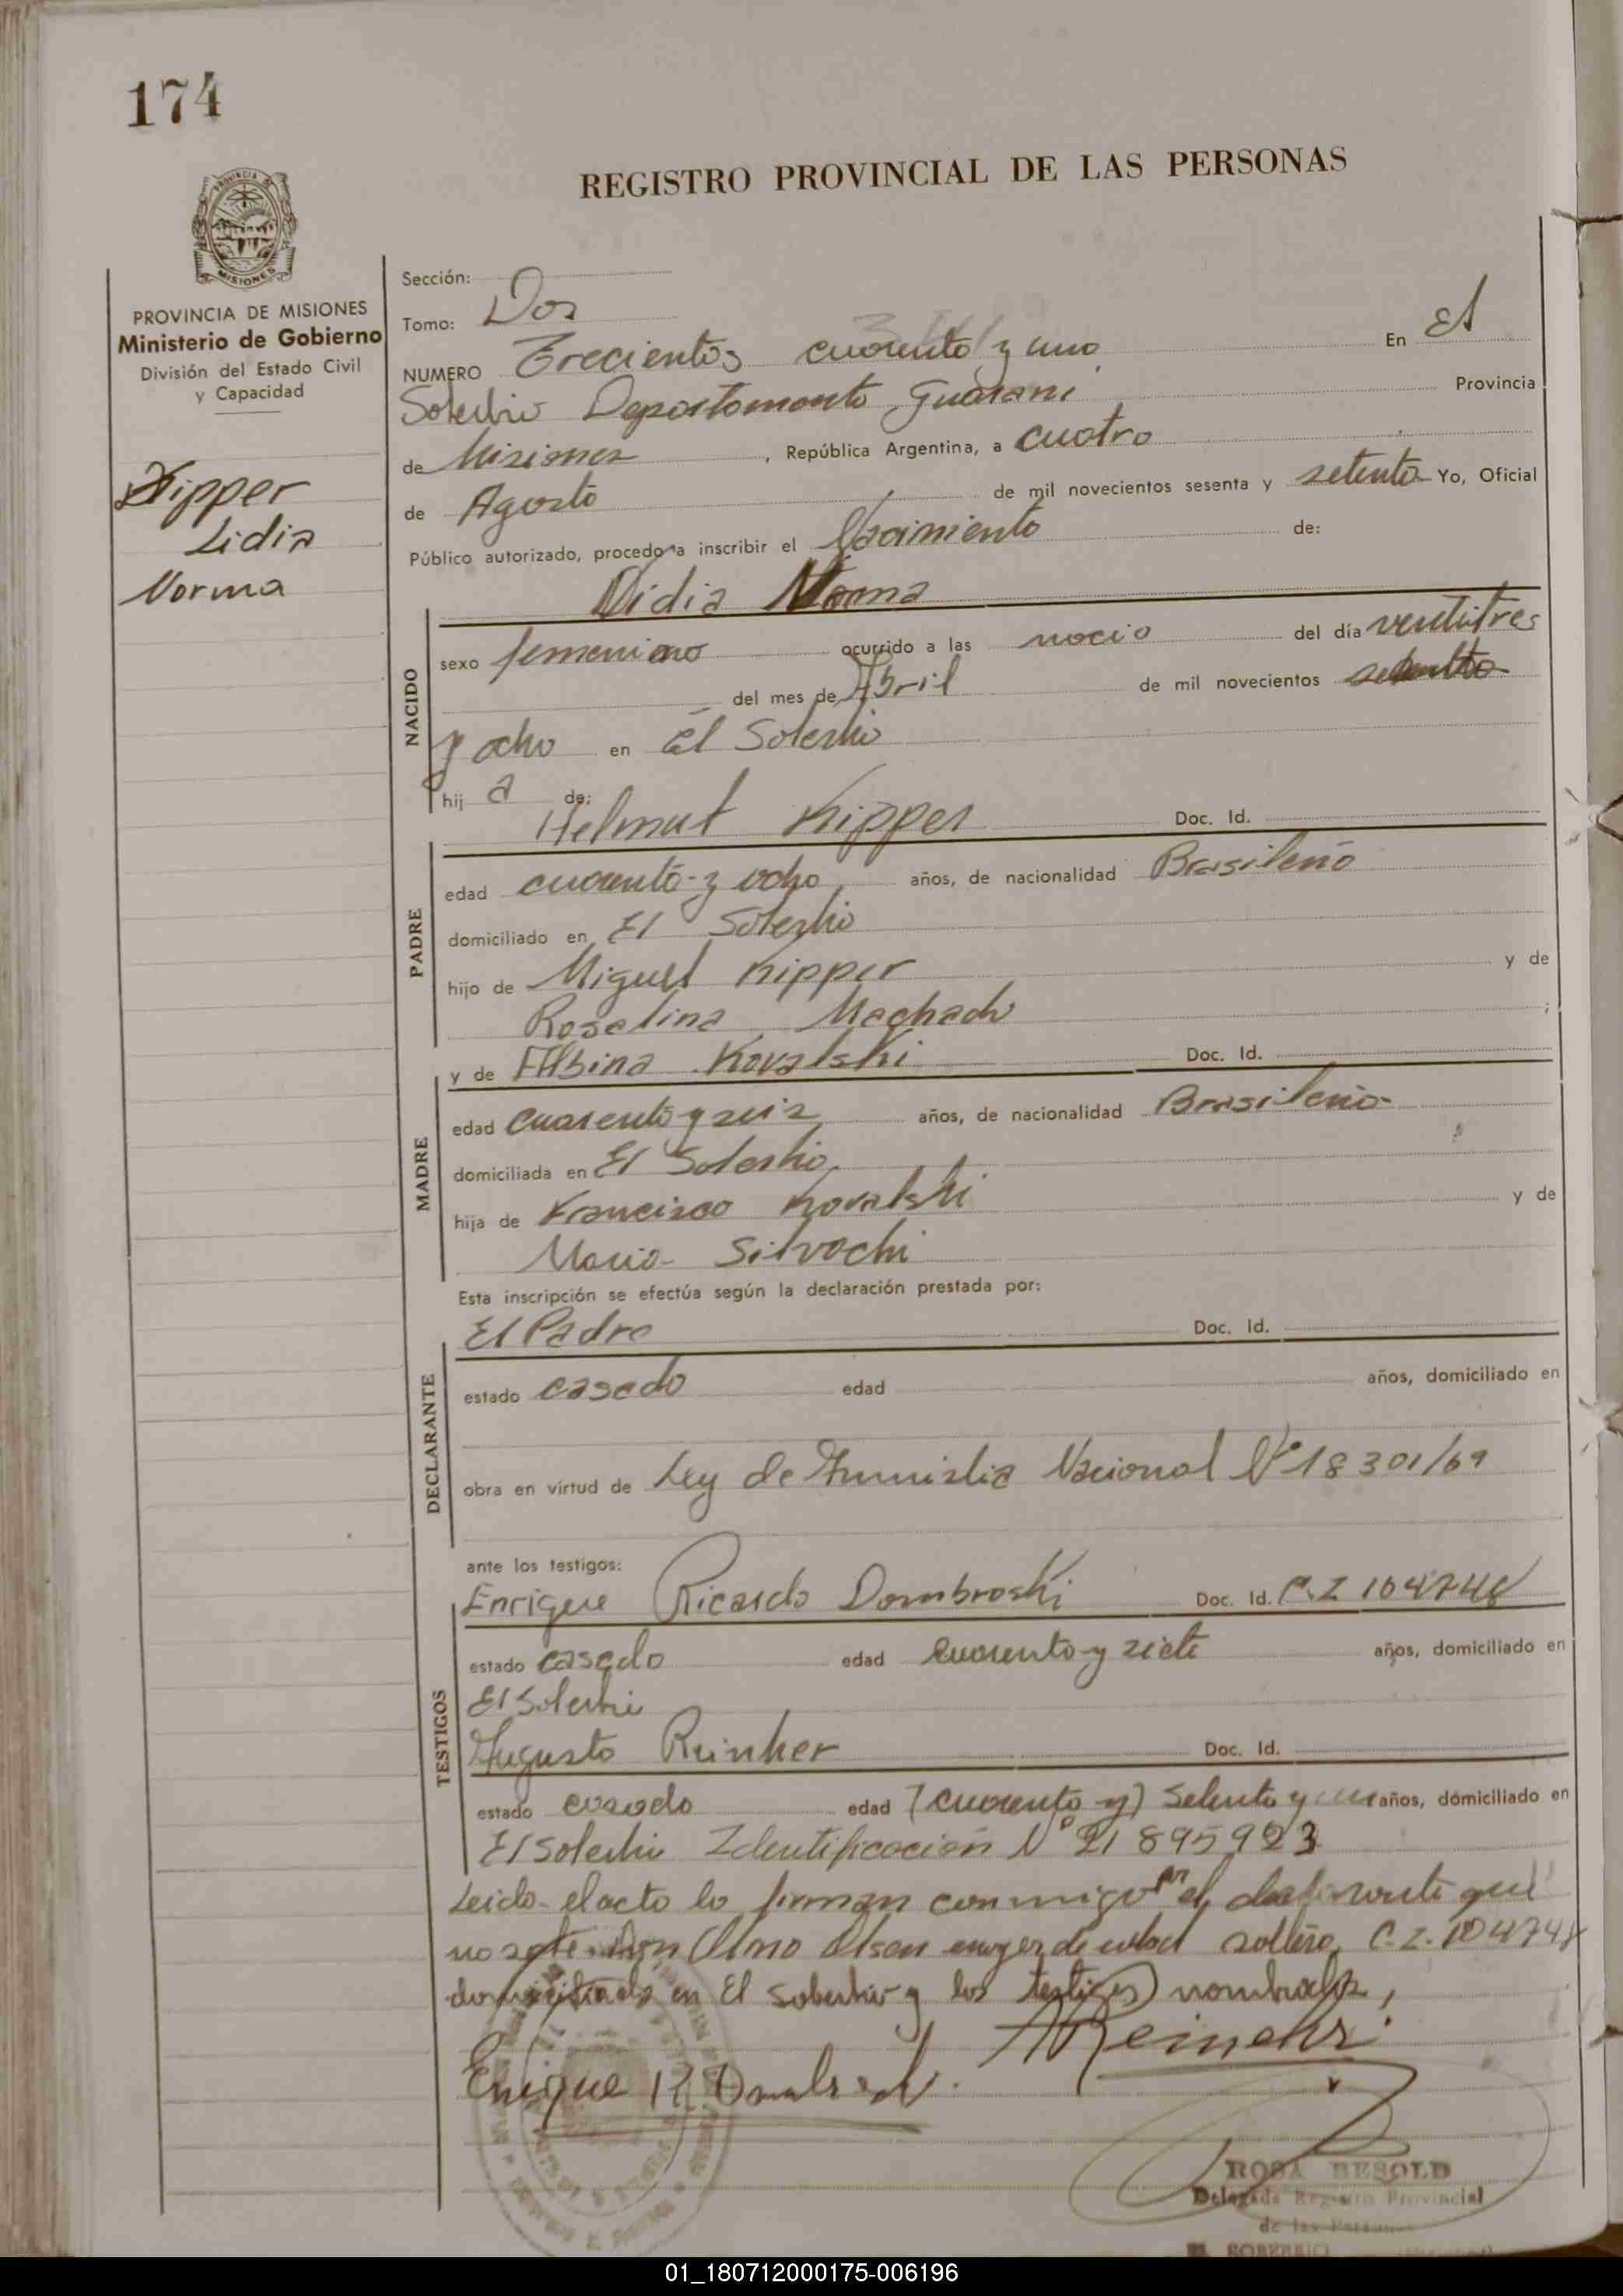 174
REGISTRO PROVINCIAL DE LAS PERSONAS
PROVINCIA DE MISIONES
PROVINCIA DE MISIONES
Ministerio de Gobierno
División del Estado Civil
y Capacidad
Kipper
Lidia
Norma
Sección:
Tomo: Dos
NUMERO Trecientos cuarenta y uno En El
Soberbio Departamento Guarani Provincia
de Misiones, República Argentina, a cuatro
de Agosto de mil novecientos sesenta y setenta Yo, Oficial
Público autorizado, procedo a inscribir el Nacimiento de:
Nidia Norma
NACIDO
sexo femenino ocurrido a las del día veintitres
del mes de Abril de mil novecientos
y ocho en El Soberbio
hij a de:
Helmut Kipper Doc. Id.
PADRE
edad cuarenta y ocho años, de nacionalidad Brasileño
domiciliado en El Soberbio
hijo de Miguel Kipper y de
Rosalina Machado ;
y de Albina Kovalski Doc. Id.
MADRE
edad cuarenta y seis años, de nacionalidad Brasileña
domiciliada en El Soberbio
hija de Francisco Kovalski y de
Maria Silvochi
Esta inscripción se efectúa según la declaración prestada por:
El Padre Doc. Id.
DECLARANTE
estado casado edad años, domiciliado en
obra en virtud de Ley de Amnistia Nacional Nº 18301/69
ante los testigos:
Enrique Ricardo Dombroski Doc. Id. C.I 104748
TESTIGOS
estado casado edad cuarenta y siete años, domiciliado en
El Soberbio
Augusto Reinher Doc. Id.
estado casado edad (cuarenta y) Setenta y años, domiciliado en
El Soberbio Identificación Nº 21895923
Leida el acto lo firman conmigo por el declarante que
no Olsen mayor de edad soltero, C.I. 104748
domiciliado en El Soberbio y los testigos nombrados,
A Reinehr
Enrique R. Dombroski
ROSA BESOLD
Delegada Registro Provincial
de las Personas
EL SOBERBIO (Misiones)
01_180712000175-006196